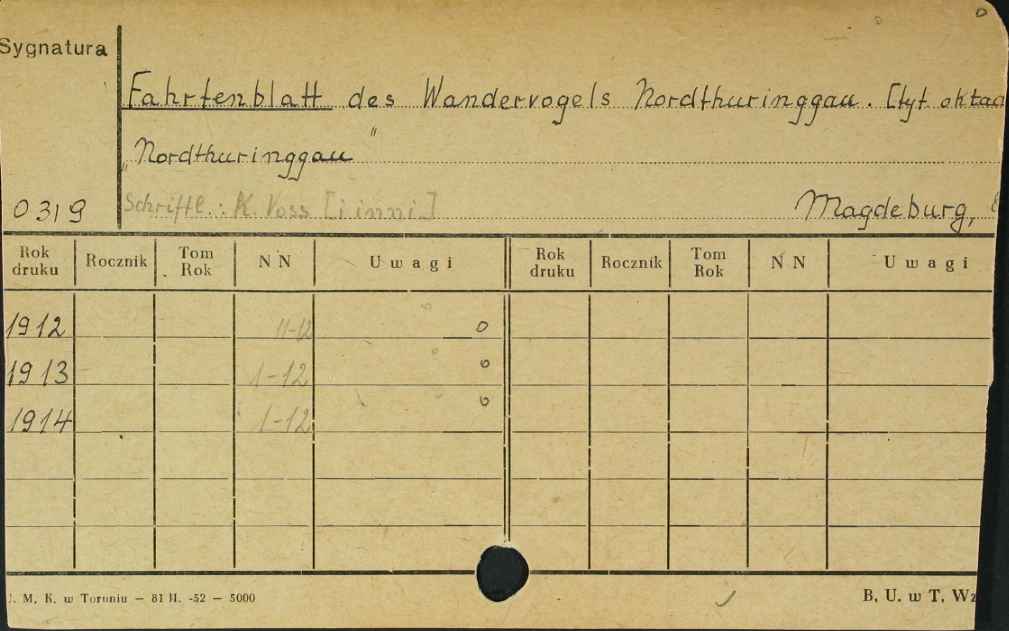 Sygnatura
Fahrtenblatt des Wandervogels Nordthuringgau. [tyt. okład
„Nordthuringgau"
0319 Schriftl.: K. Voss [i inni] Magdeburg,
Rok druku Rocznik Tom Rok NN Uwagi Rok druku Rocznik Tom Rok NN Uwagi
1912 11-12
1913 1-12
1914 1-12
J. M. K. w Toruniu — 81 II. -52 — 5000 B. U. w T. Wz